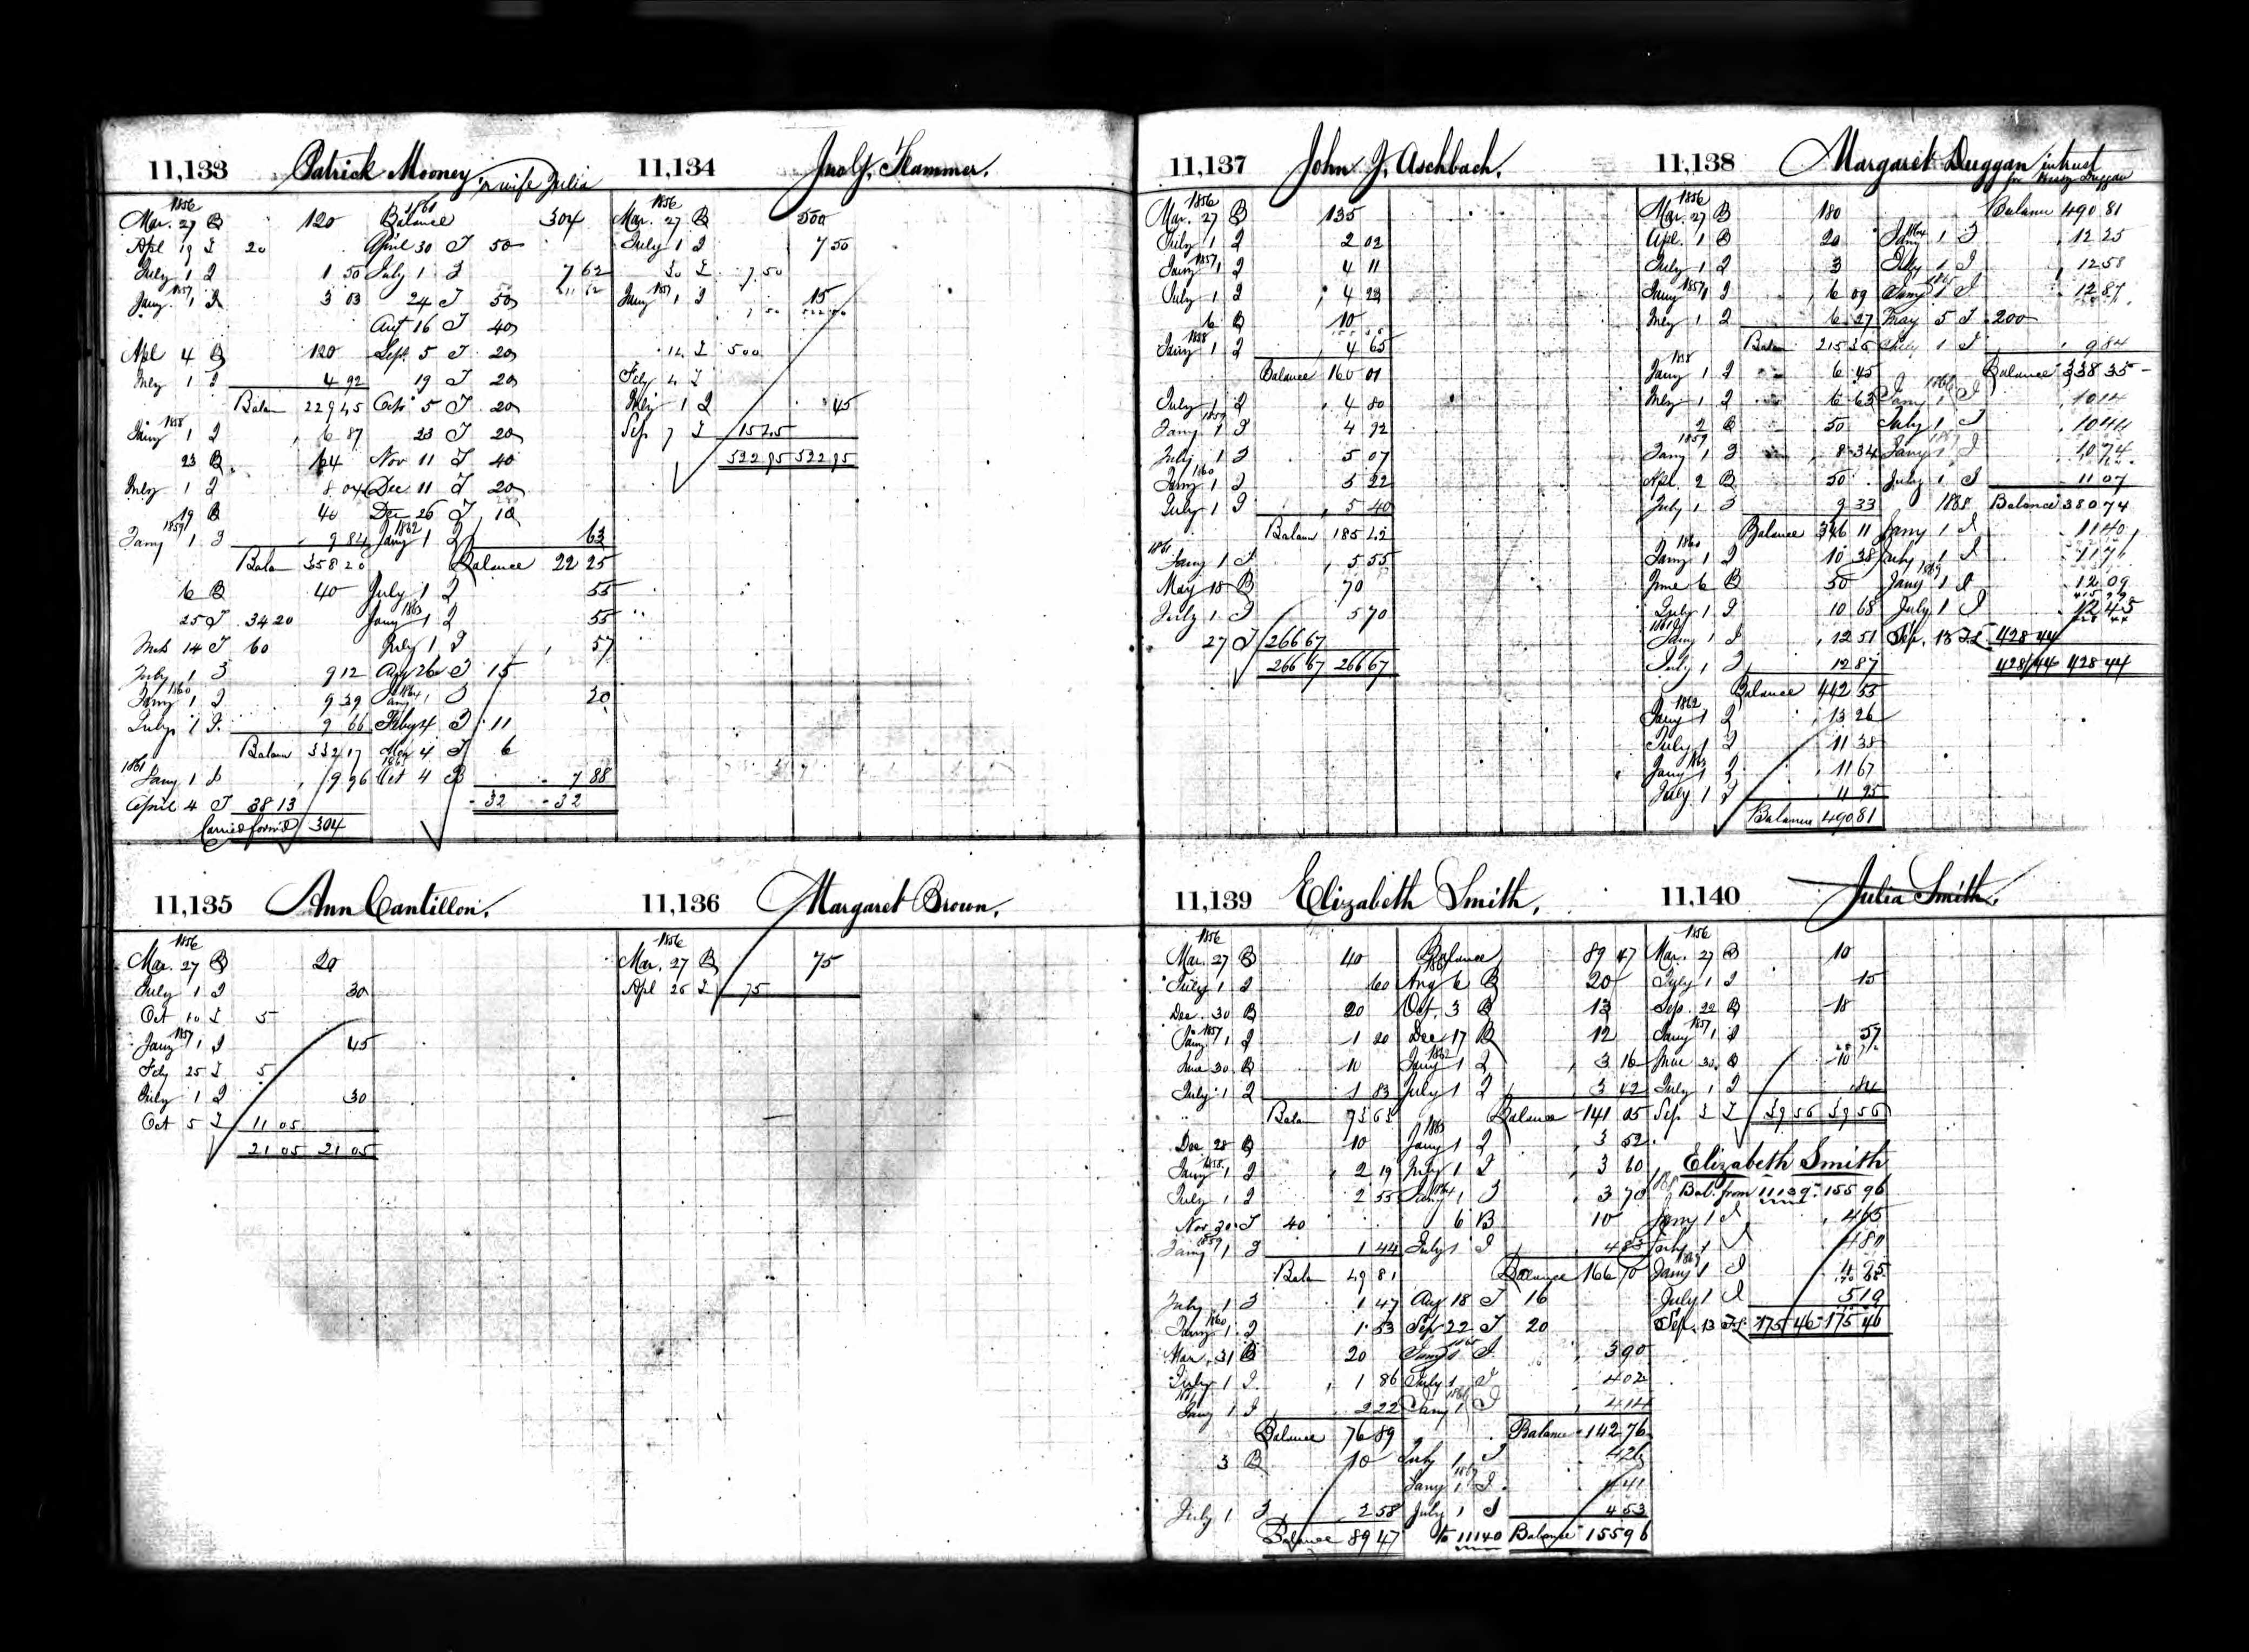 11,133 Patrick Mooney or wife Julia
1856
Mar. 27 B 120
Apl 19 I 20
July 1 I 1 50
1857
Jany 1 I 3 03
Apl 4 B 120
July 1 I 4 92
Balan 229 45
1858
Jany 1 I 6 87
23 B 164
July 1 I 8 04
19 B 40
1859
Jany 1 I 9 84
Balan 358 20
6 B 40
25 I 34 20
Mch 14 I 60
July 1 I 9 12
1860
Jany 1 I 9 39
July 1 I 9 66
Balan 332 17
1861
Jany 1 I 9 96
April 4 I 38 13
Carried forw'd 304
1861
Balance 304
April 30 I 50
July 1 I 7 62
24 I 50
Aug 16 I 40
Sept. 5 I 20
19 I 20
Octr 5 I 20
23 I 20
Nov 11 I 40
Dec 11 I 20
Dec 26 I 10
1862
Jany 1 I 63
Balance 22 25
July 1 I 55
1863
Jany 1 I 55
July 1 I 57
Aug 26 I 15
1864
Jany 1 I 30
Feby 4 I 11
May 4 I 6
Oct 4 B 7 88
32 32
11,134 Jno G. Hammer.
1856
Mar. 27 B 500
July 1 I 7 50
30 I 7.50
1857
Jany 1 I 15
12 I 500
Feby 4 I
July 1 I 45
Sep 7 I 15 45
522 95 522 95
11,135 Ann Cantillon.
1856
Mar. 27 B 20
July 1 I 30
Oct 10 I 5
1857
Jany 1 I 45
Feby 25 I 5
July 1 I 30
Oct 5 I 11 05
21 05 21 05
11,136 Margaret Brown.
1856
Mar. 27 B 75
Apl 26 I 75
11,137 John J. Aschbach.
1856
Mar. 27 B 135
July 1 I 2 02
1857
Jany 1 I 4 11
July 1 I 4 23
6 B 10
1858
Jany 1 I 4 65
Balance 160 01
July 1 I 4 80
1859
Jany 1 I 4 92
July 1 I 5 07
1860
Jany 1 I 5 22
July 1 I 5 40
Balan 185 42
1861
Jany 1 I 5 55
May 18 B 70
July 1 I 5 70
27 I 266 67
266 67 266 67
11,138 Margaret Duggan in trust
for Duggan
1856
Mar. 27 B 180
Apl. 1 B 20
July 1 I 3
1857
Jany 1 I 6 09
July 1 I 6 27
Balan 215 36
1858
Jany 1 I 6 45
July 1 I 6 63
2 B 50
1859
Jany 1 I 8 34
Apl 2 B 50
July 1 I 9 33
Balance 346 11
1860
Jany 1 I 10 38
June 6 B 50
July 1 I 10 68
1861
Jany 1 I 12 51
July 1 I 12 87
Balance 442 55
1862
Jany 1 I 13 26
July 1 I 11 38
1863
Jany 1 I 11 67
July 1 I 11 95
Balance 490 81
Balance 490 81
1864
Jany 1 I 12 25
July 1 I 12 58
1865
Jany 1 I 12 87
May 5 I 200
July 1 I 9 84
Balance 338 35
1866
Jany 1 I 10 14
July 1 I 10 44
1867
Jany 1 I 10 74
July 1 I 11 07
1868 Balance 380 74
Jany 1 I 11 40
July 1 I 11 76
1869
Jany 1 I 12 09
July 1 I 12 45
Sep. 13 428 44
428 44 428 44
11,139 Elizabeth Smith.
1856
Mar. 27 B 40
July 1 I 60
Dec. 30 B 20
1857
Jany 1 I 1 20
June 30 B 10
July 1 I 1 83
Balan 73 63
Dec 28 B 10
1858
Jany 1 I 2 19
July 1 I 2 55
Nov 20 I 40
1859
Jany 1 I 1 44
Balan 49 81
July 1 I 1 47
1860
Jany 1 I 1 53
Mar. 31 B 20
July 1 I 1 86
1861
Jany 1 I 2 22
Balance 76 89
3 B 10
July 1 I 2 58
Balance 89 47
Balance 89 47
1861
Aug 6 B 20
Oct. 3 B 13
Dec 17 B 12
1862
Jany 1 I 3 16
July 1 I 3 42
Balance 141 05
1863
Jany 1 I 3 52
July 1 I 3 60
1864
Jany 1 I 3 70
6 B 10
July 1 I 4 83
Balance 166 70
Aug 18 I 16
Sep 22 I 20
1865
Jany 1 I 3 90
July 1 I 4 02
1866
Jany 1 I 4 14
Balance 142 76
July 1 I 4 26
1867
Jany 1 I 4 41
July 1 I 4 53
to 11140 Balance 155 96
11,140 Julia Smith.
1856
Mar. 27 B 10
July 1 I 15
Sep. 22 B 18
1857
Jany 1 I 57
June 30 B 10
July 1 I 84
Sep. 3 I 39 56 39 56
Elizabeth Smith
1868
Bal. from 11139 155 96
Jany 1 I 4 65
July 1 I 4 80
1869
Jany 1 I 4 95
July 1 I 5 10
Sep. 13 175 46 175 46